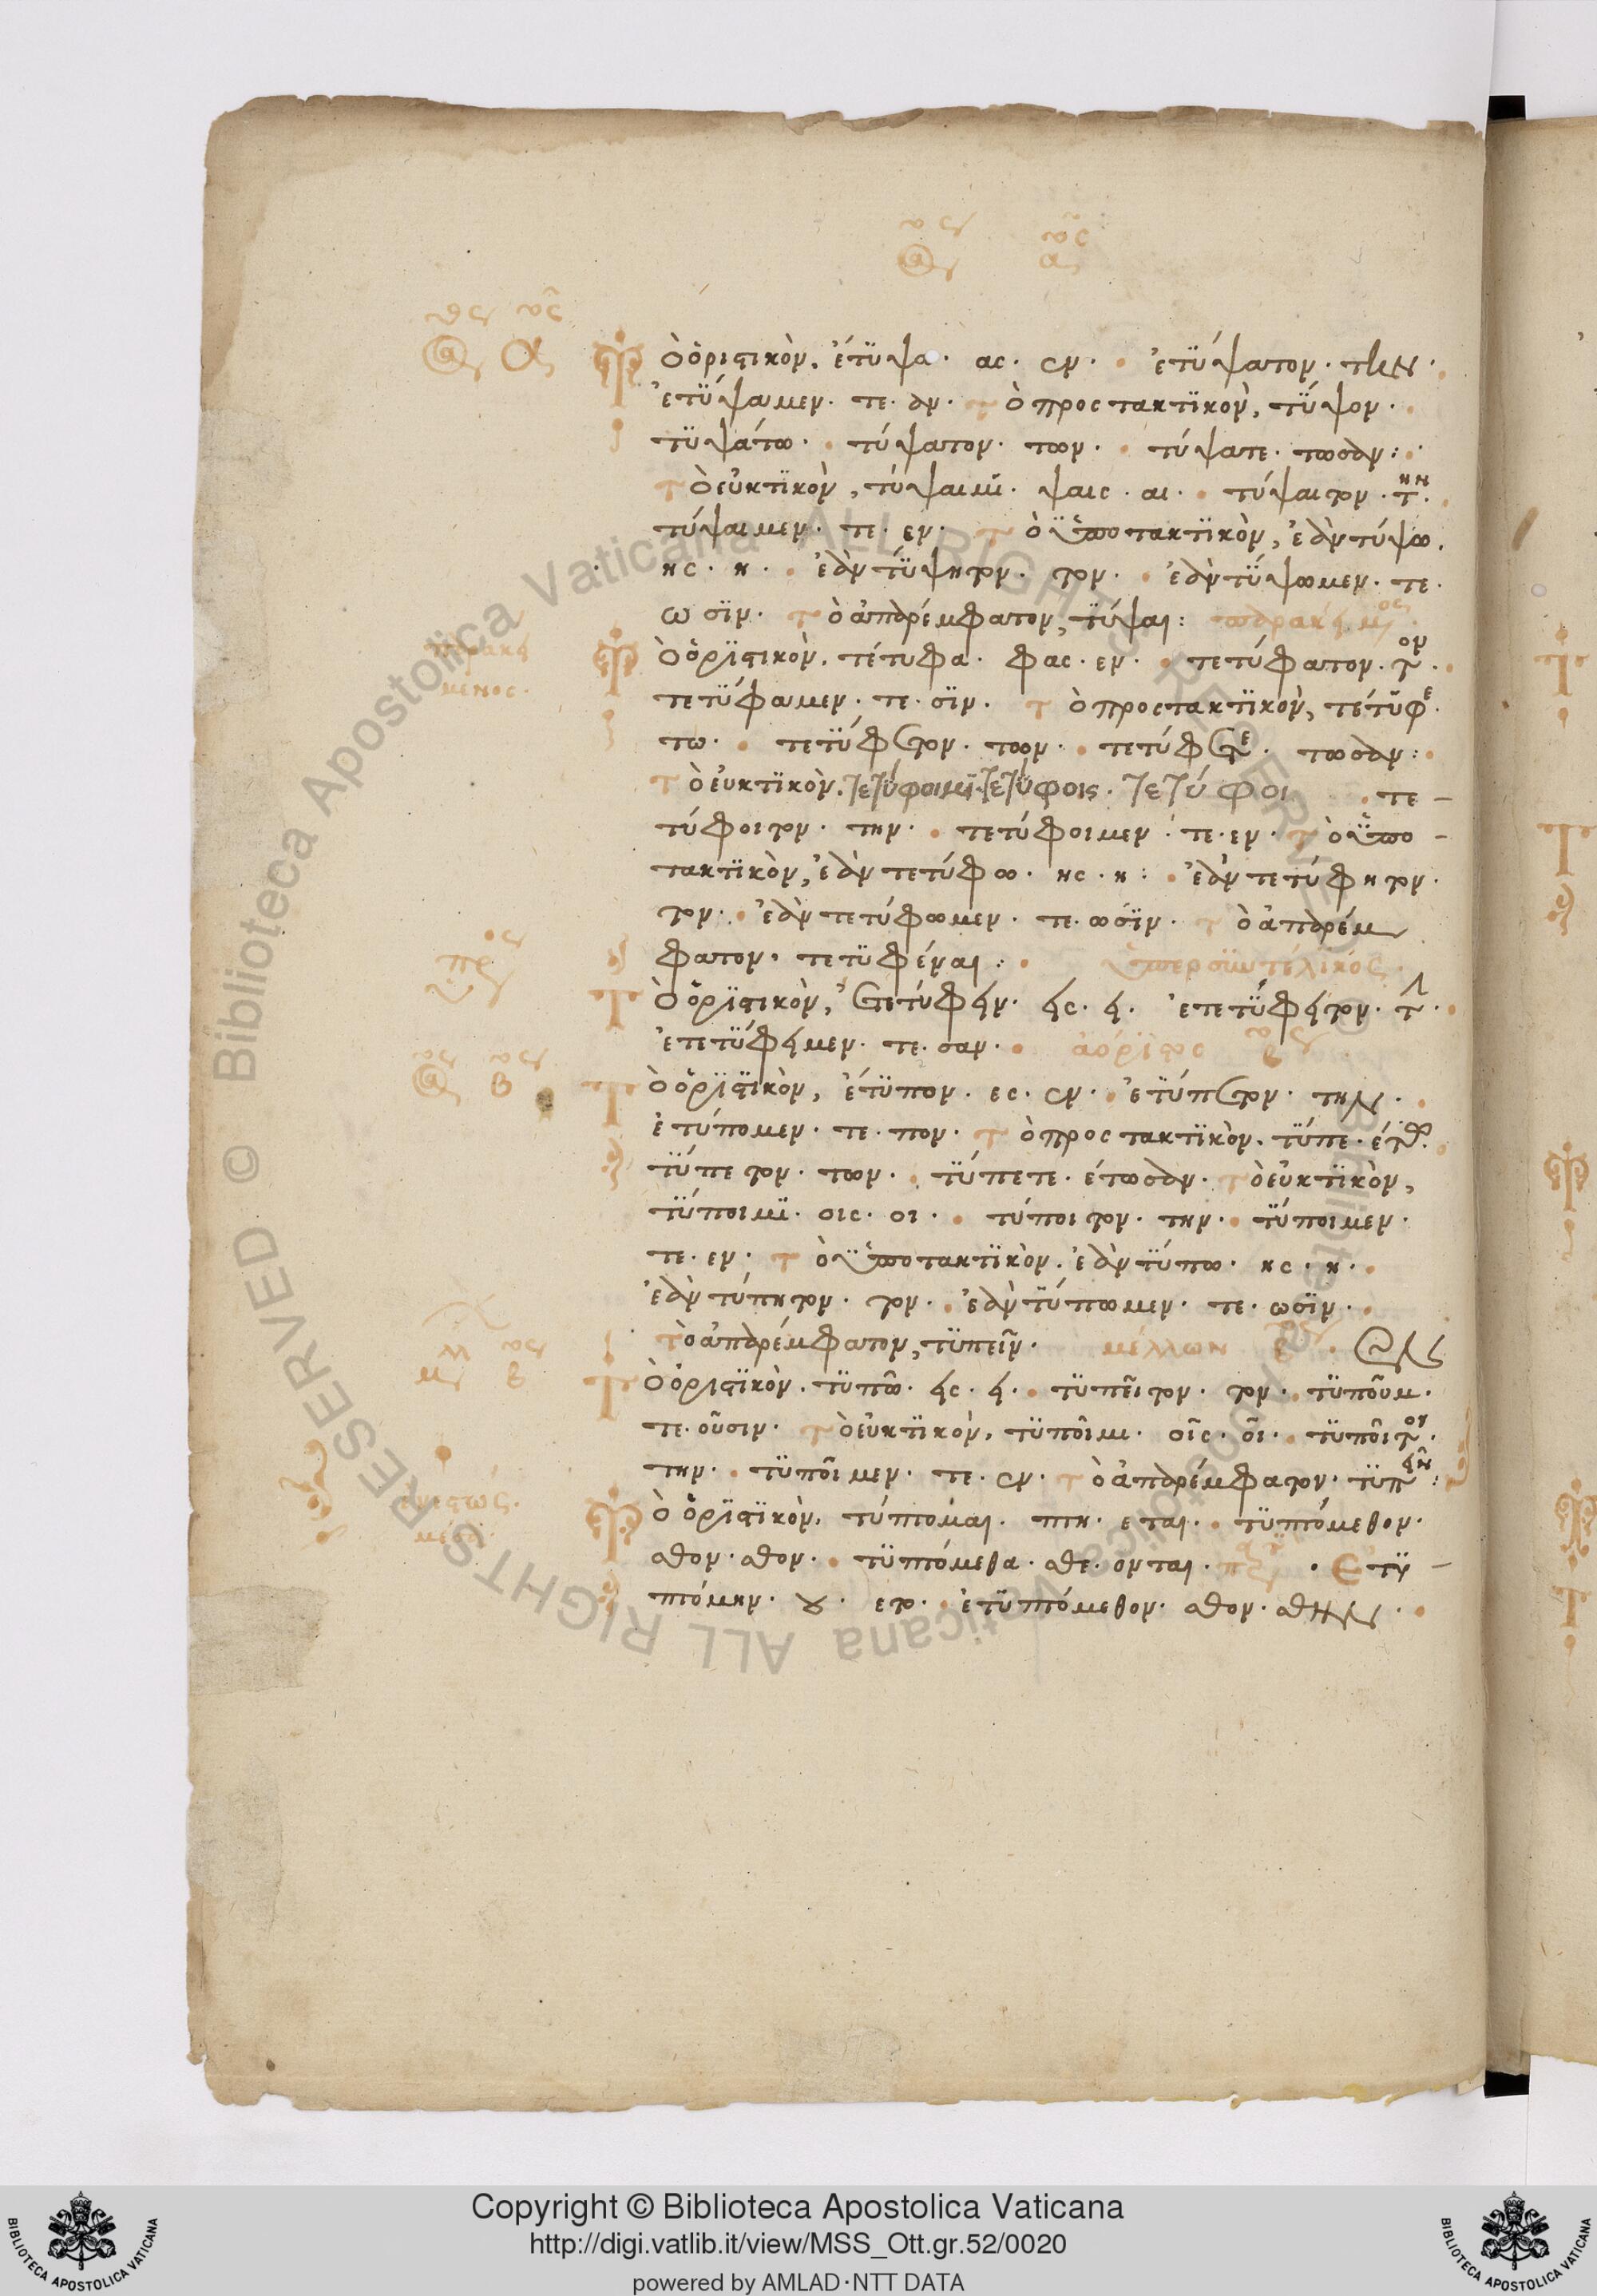 Τὸ ὁριστικὸν, ἔτϋψα· ας· εν· ἐτΰψατον· την·
ἐτΰψαμεν· τε· αν· τὸ προστακτϊκὸν, τΰψον·
τϋψάτω· τύψατον· των· τύψατε· τωσαν:
τὸ εὐκτϊκὸν, τύψαιμϊ· ψαις· αι· τύψαιτον· τ̅ην·
τύψαιμεν· τε· εν· τὸ ὑποτακτϊκὸν, ἐὰν τύψω·
ης· η· ἐὰν τΰψητον· τον· ἐὰν τΰψωμεν· τε·
ωσϊν· τὸ ἀπαρέμφατον, τΰψαι: παρακείμ
παρακεί
μενος·
Τὸ ὁρϊστικὸν, τέτυφα· φας· εν· τετύφατον· τον·
τετΰφαμεν· τε· σϊν· τὸ προστακτϊκὸν, τέτϋφε·
τω· τετΰφετον· των· τετύφετε· τωσαν:
τὸ εὐκτϊκὸν, τετύφοιμϊ τετύφοις· τετύφοι τε-
τύφοιτον· την· τετύφοιμεν· τε· εν· τὸ ὑπο-
τακτϊκὸν, ἐὰν τετύφω· ης· η: ἐὰν τετύφητον·
τον· ἐὰν τετύφωμεν· τε· ωσϊν· τὸ ἀπαρέμ
φατον· τετϋφέναι: ὑπερσϋντέλικός·
Τὸ ὁρϊστικὸν, ἐτετύφειν· εις· ει· ἐτετΰφειτον· την·
ἐτετΰφειμεν· τε· σαν· ἀόρϊστος β
Τὸ ὁρϊστϊκὸν, ἔτϋπον· ες· εν· ἐτΰπετον· την·
ἐτύπομεν· τε· πον· τὸ προστακτϊκὸν· τΰπε· έτω·
τΰπετον· των· τΰπετε· έτωσαν· τὸ εὐκτϊκὸν,
τΰποιμϊ· οις· οι· τύποιτον· την· τΰποιμεν·
τε· εν· τὸ ὑποτακτϊκὸν· ἐὰν τΰπω· ης· η·
ἐὰν τύπητον· τον· ἐὰν τΰπωμεν· τε· ωσϊν·
τὸ ἀπαρέμφατον, τϋπεῖν· μέλλων β
Τὸ ὁριστϊκὸν· τϋπῶ· εις· ει· τϋπεῖτον· τον· τϋποῦμ·
τε· οῦσιν· τὸ εὐκτϊκὸν, τϋποῖμι· οῖς· οῖ· τϋποῖτον·
την· τϋποῖμεν· τε· εν· τὸ ἀπαρέμφατον· τϋπεῖν:
ἐνεστώς·
Τὸ ὁρϊστϊκὸν, τύπτομαι· πτη· εται· τϋπτόμεθον·
σθον· σθον· τϋπτόμεθα· σθε· ονται· Ἐτϋ-
πτόμην· ου· ετο· ἐτϋπτόμεθον· σθον· σθην·
Copyright © Biblioteca Apostolica Vaticana
http://digi.vatlib.it/view/MSS_Ott.gr.52/0020
powered by AMLAD·NTT DATA
BIBLIOTECA APOSTOLICA VATICANA
BIBLIOTECA APOSTOLICA VATICANA
© Biblioteca Apostolica Vaticana ALL RIGHTS RESERVED